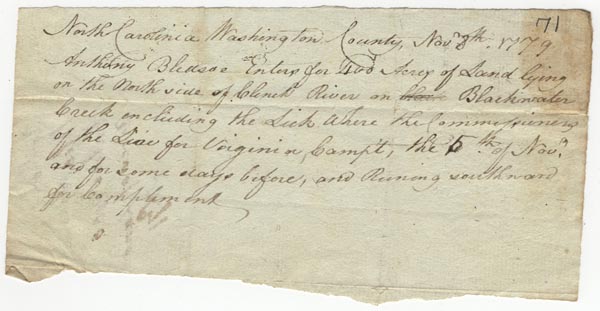 71
North Carolinia Washington County, Novr 8th. 1779
Anthony Bledsoe Enters for 400 Acres of Land lying
on the North side of Clinch River on Blackwater
Creek encluding the Lick Where the Commissioners
of the Line for Virginia, Campt, the 5th of Novr
and for some days before, and Runing southward
for Complyment